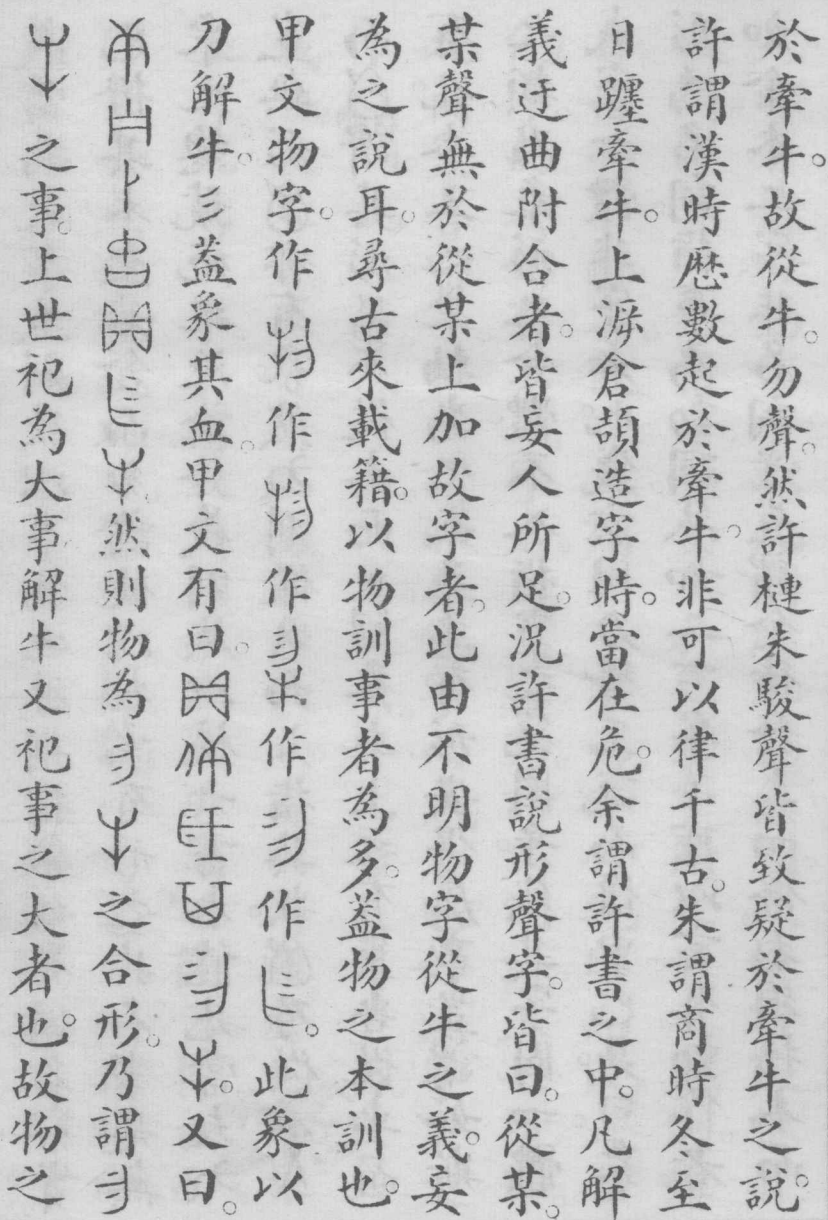 於牽牛。故從牛。勿聲。然許槤朱駿聲皆致疑於牽牛之說。
許謂漢時歷數起於牽牛。非可以律千古。朱謂商時冬至
日躔牽牛。上溯倉頡造字時。當在危。余謂許書之中。凡解
義迂曲附合者。皆妄人所足。況許書說形聲字。皆曰。從某。
某聲。無於從某上加故字者。此由不明物字從牛之義。妄
為之說耳。尋古來載籍。以物訓事者為多。蓋物之本訓也。
甲文物字。作作作作作。此象以
刀解牛。彡蓋象其血。甲文有曰。又曰。
然則物為之合形。乃謂
之事。上世祀為大事。解牛又祀事之大者也。故物之